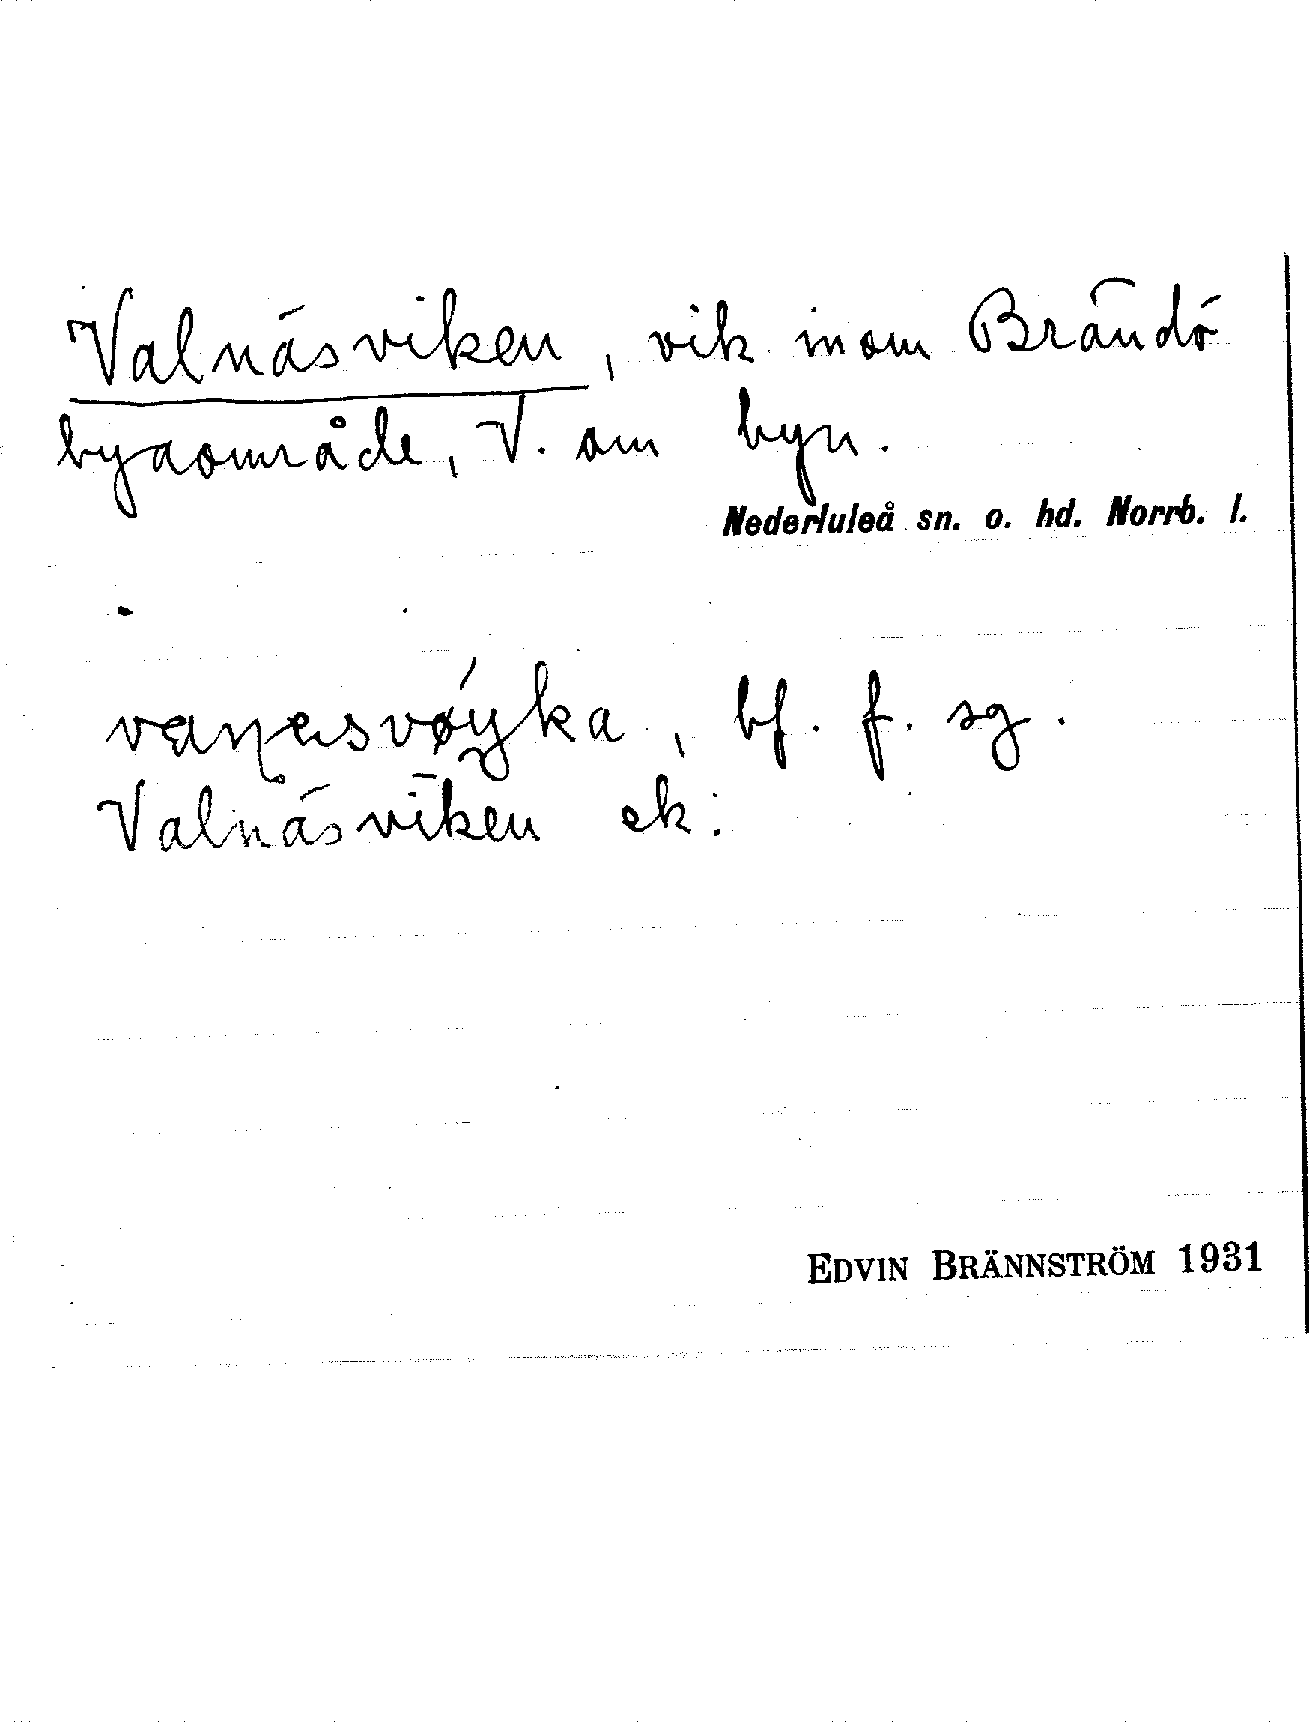 Valnäsviken, vik inom Brändö
byaområde, V. om byn.
Nederluleå sn. o. hd. Norrb. l.
bf. f. sg.
Valnäsviken ek:
EDVIN BRÄNNSTRÖM 1931